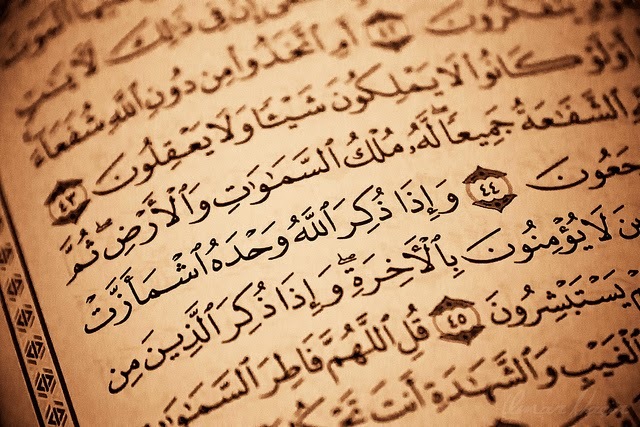 إِنَّ فِى ذَٰلِكَ لَأٓيَٰتٍ
يَتَفَكَّرُونَ ٤٢ أَمِ ٱتَّخَذُوا۟ مِن دُونِ ٱللَّهِ شُفَعَآءَ
أَوَلَوْ كَانُوا۟ لَا يَمْلِكُونَ شَيْـًٔا وَلَا يَعْقِلُونَ ٤٣
ٱلشَّفَٰعَةُ جَمِيعًا ۖ لَّهُۥ مُلْكُ ٱلسَّمَٰوَٰتِ وَٱلْأَرْضِ ۖ ثُمَّ
جَعُونَ ٤٤ وَإِذَا ذُكِرَ ٱللَّهُ وَحْدَهُ ٱشْمَأَزَّتْ
لَا يُؤْمِنُونَ بِٱلْأٓخِرَةِ ۖ وَإِذَا ذُكِرَ ٱلَّذِينَ مِن
يَسْتَبْشِرُونَ ٤٥ قُلِ ٱللَّهُمَّ فَاطِرَ ٱلسَّمَٰوَٰتِ
ٱلْغَيْبِ وَٱلشَّهَٰدَةِ أَنتَ تَحْكُمُ